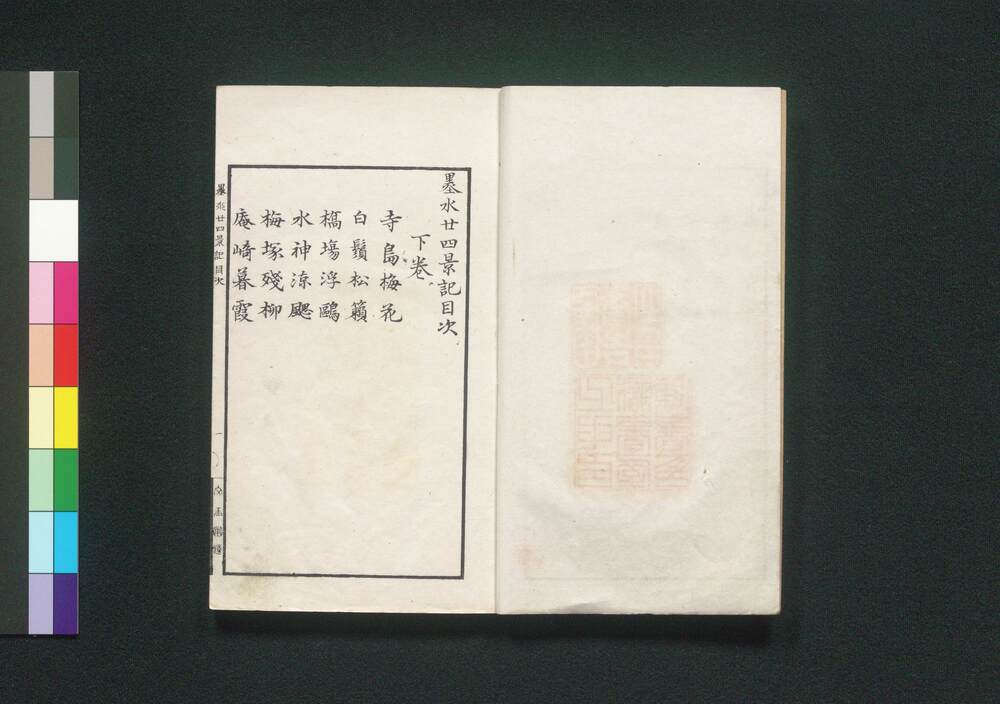 墨水廿四景記目次
下巻
寺島梅花
白鬚松籟
橋塲浮鷗
水神涼颸
梅塚殘柳
庵崎暮霞
墨水廿四景記目次
一